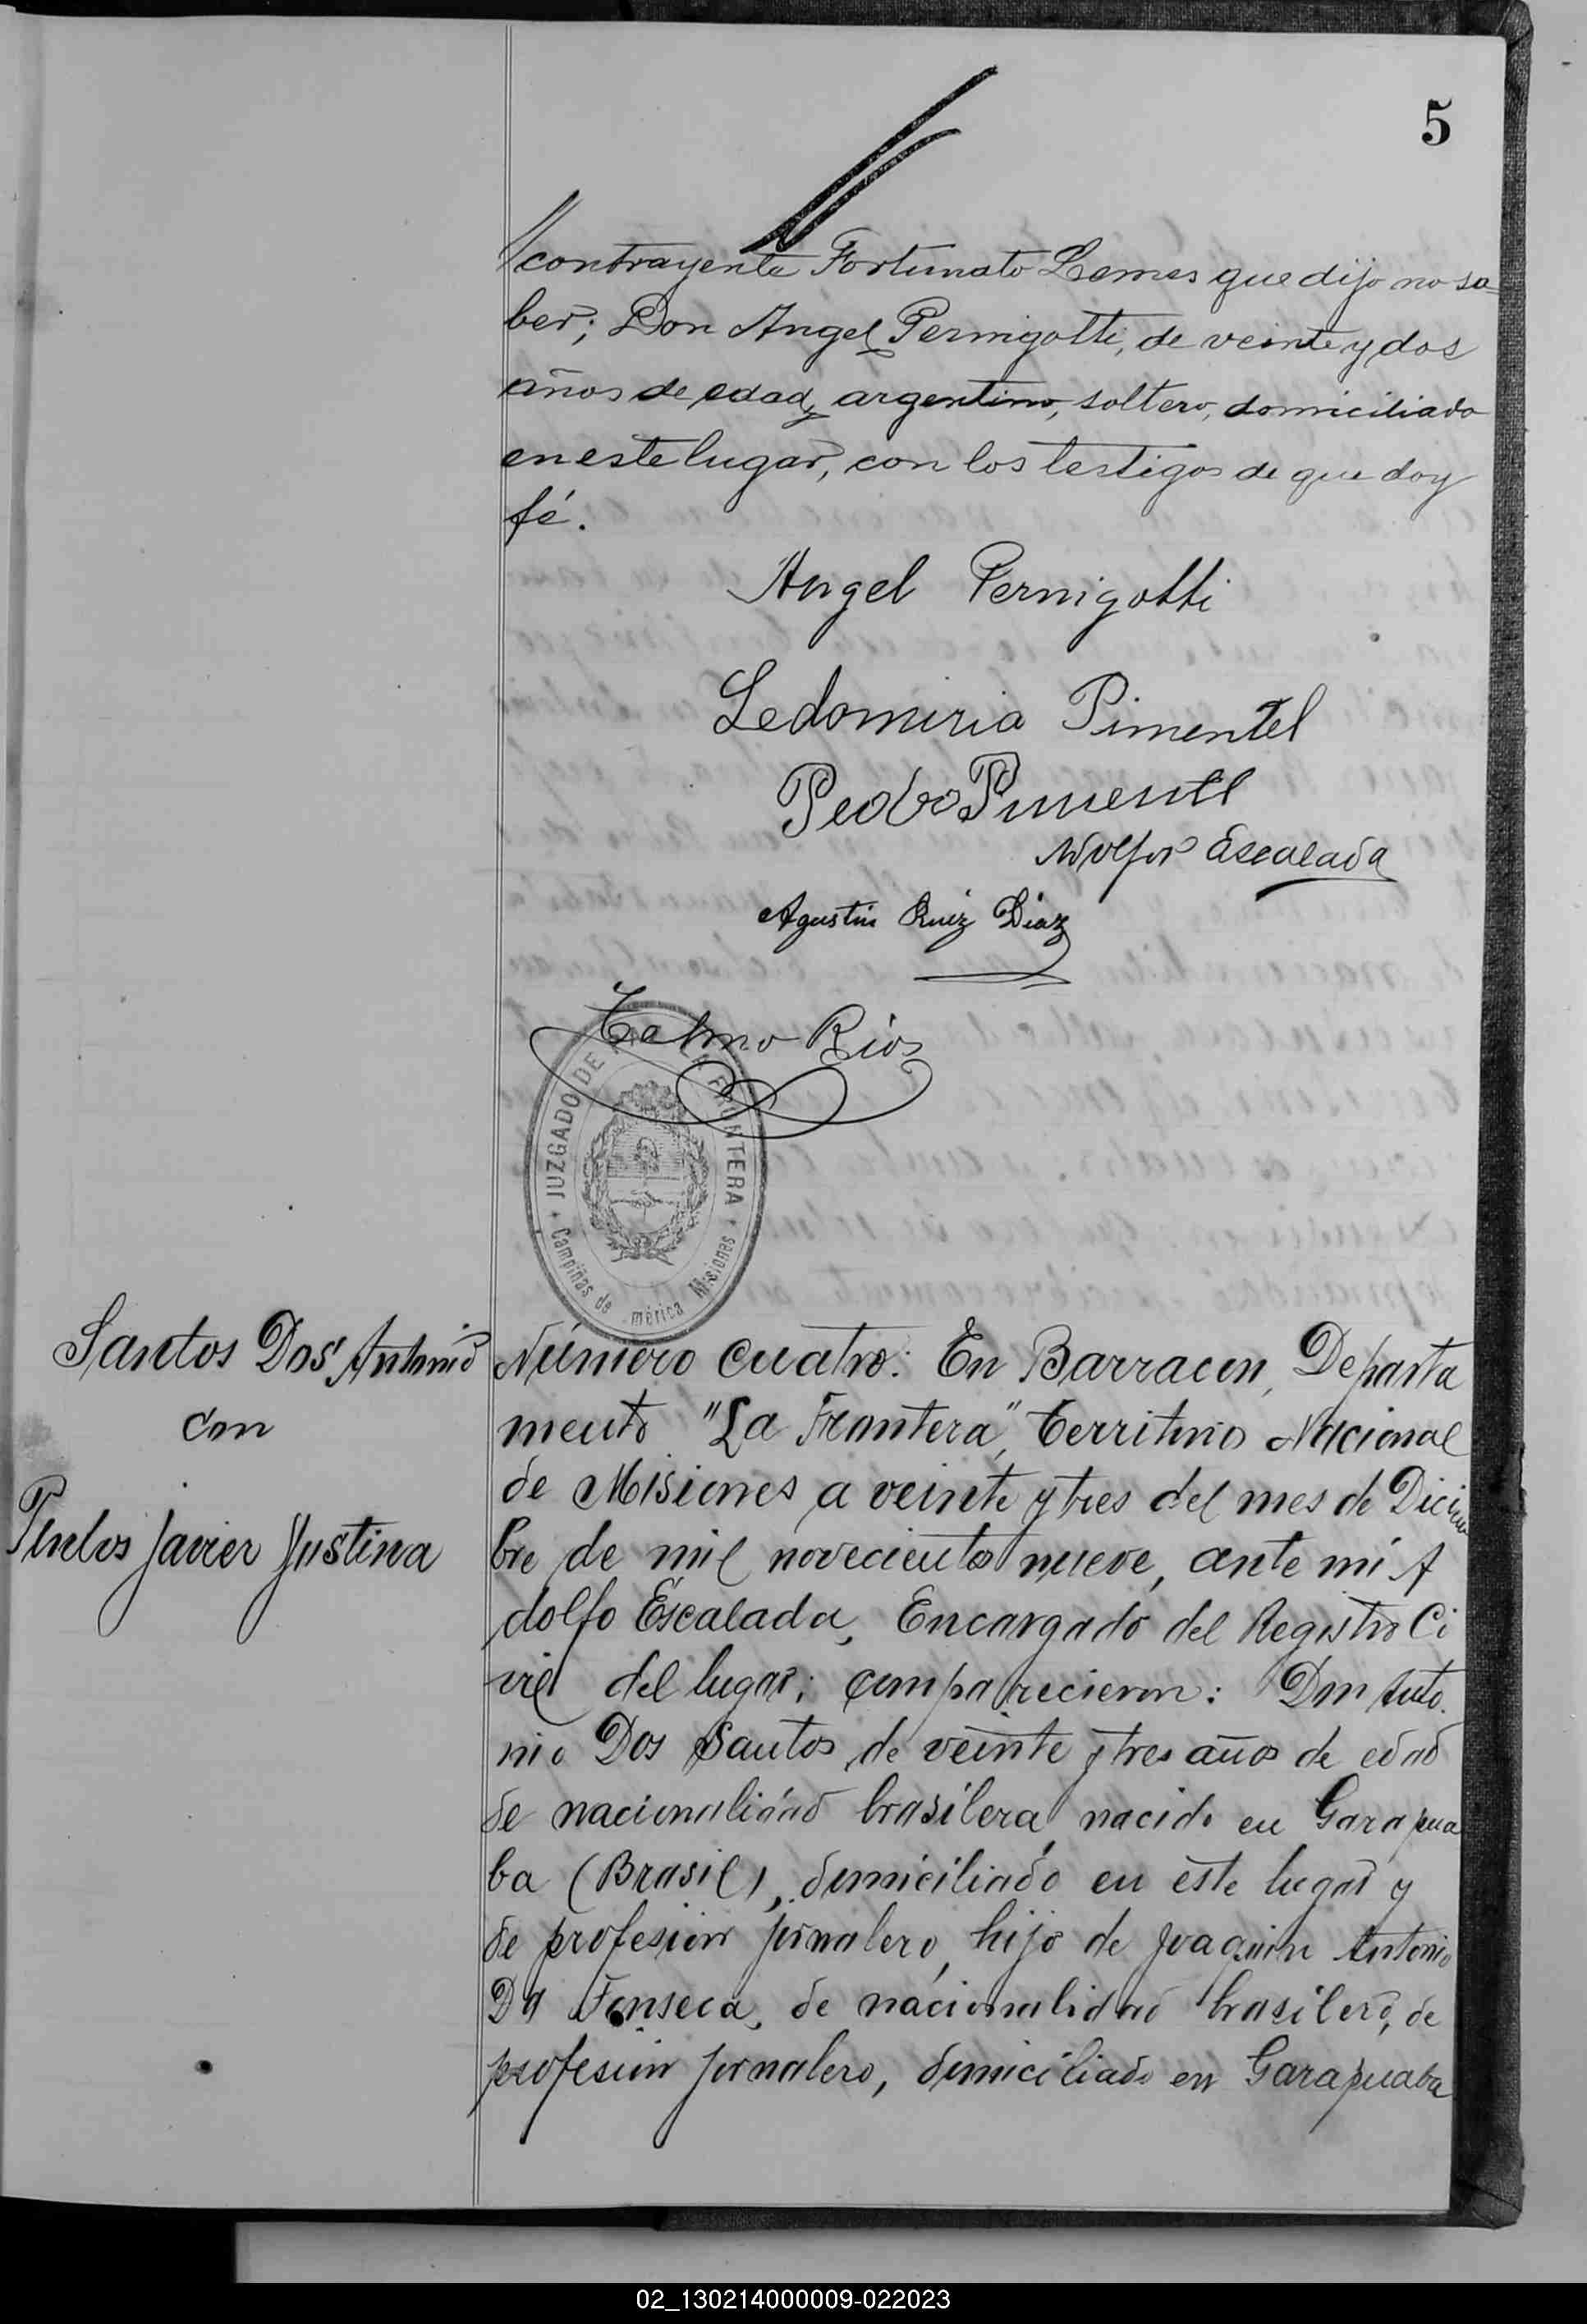 5
contrayente Fortunato Lemes que dijo no sa=
ber; Don Angel Pernigotti, de veinte y dos
años de edad, argentino, soltero, domiciliado
en este lugar, con los testigos de que doy
fé.
Angel Pernigotti
Ledomiria Pimentel
Pedro Pimentel
Adolfo Escalada
Agustin Ruiz Diaz
Telmo Rios
JUZGADO DE FRONTERA
Campiñas de mérica Misiones
Santos Dos Antonio
con
Javier Justina
Número cuatro: En Barracon, Departa
mento "La Frontera", Territorio Nacional
de Misiones a veinte y tres del mes de Diciem
bre de mil novecientos nueve, ante mí A
dolfo Escalada, Encargado del Registro Ci
vil del lugar; comparecieron: Don Anto.
nio Dos Santos, de veinte y tres años de edad
de nacionalidad brasilera, nacido en Garapua
ba (Brasil), domiciliado en este lugar y
de profesión jornalero, hijo de Joaquin Antonio
Da Fonseca, de nacionalidad brasilero, de
profesión jornalero, domiciliado en Garapuaba
02_130214000009-022023